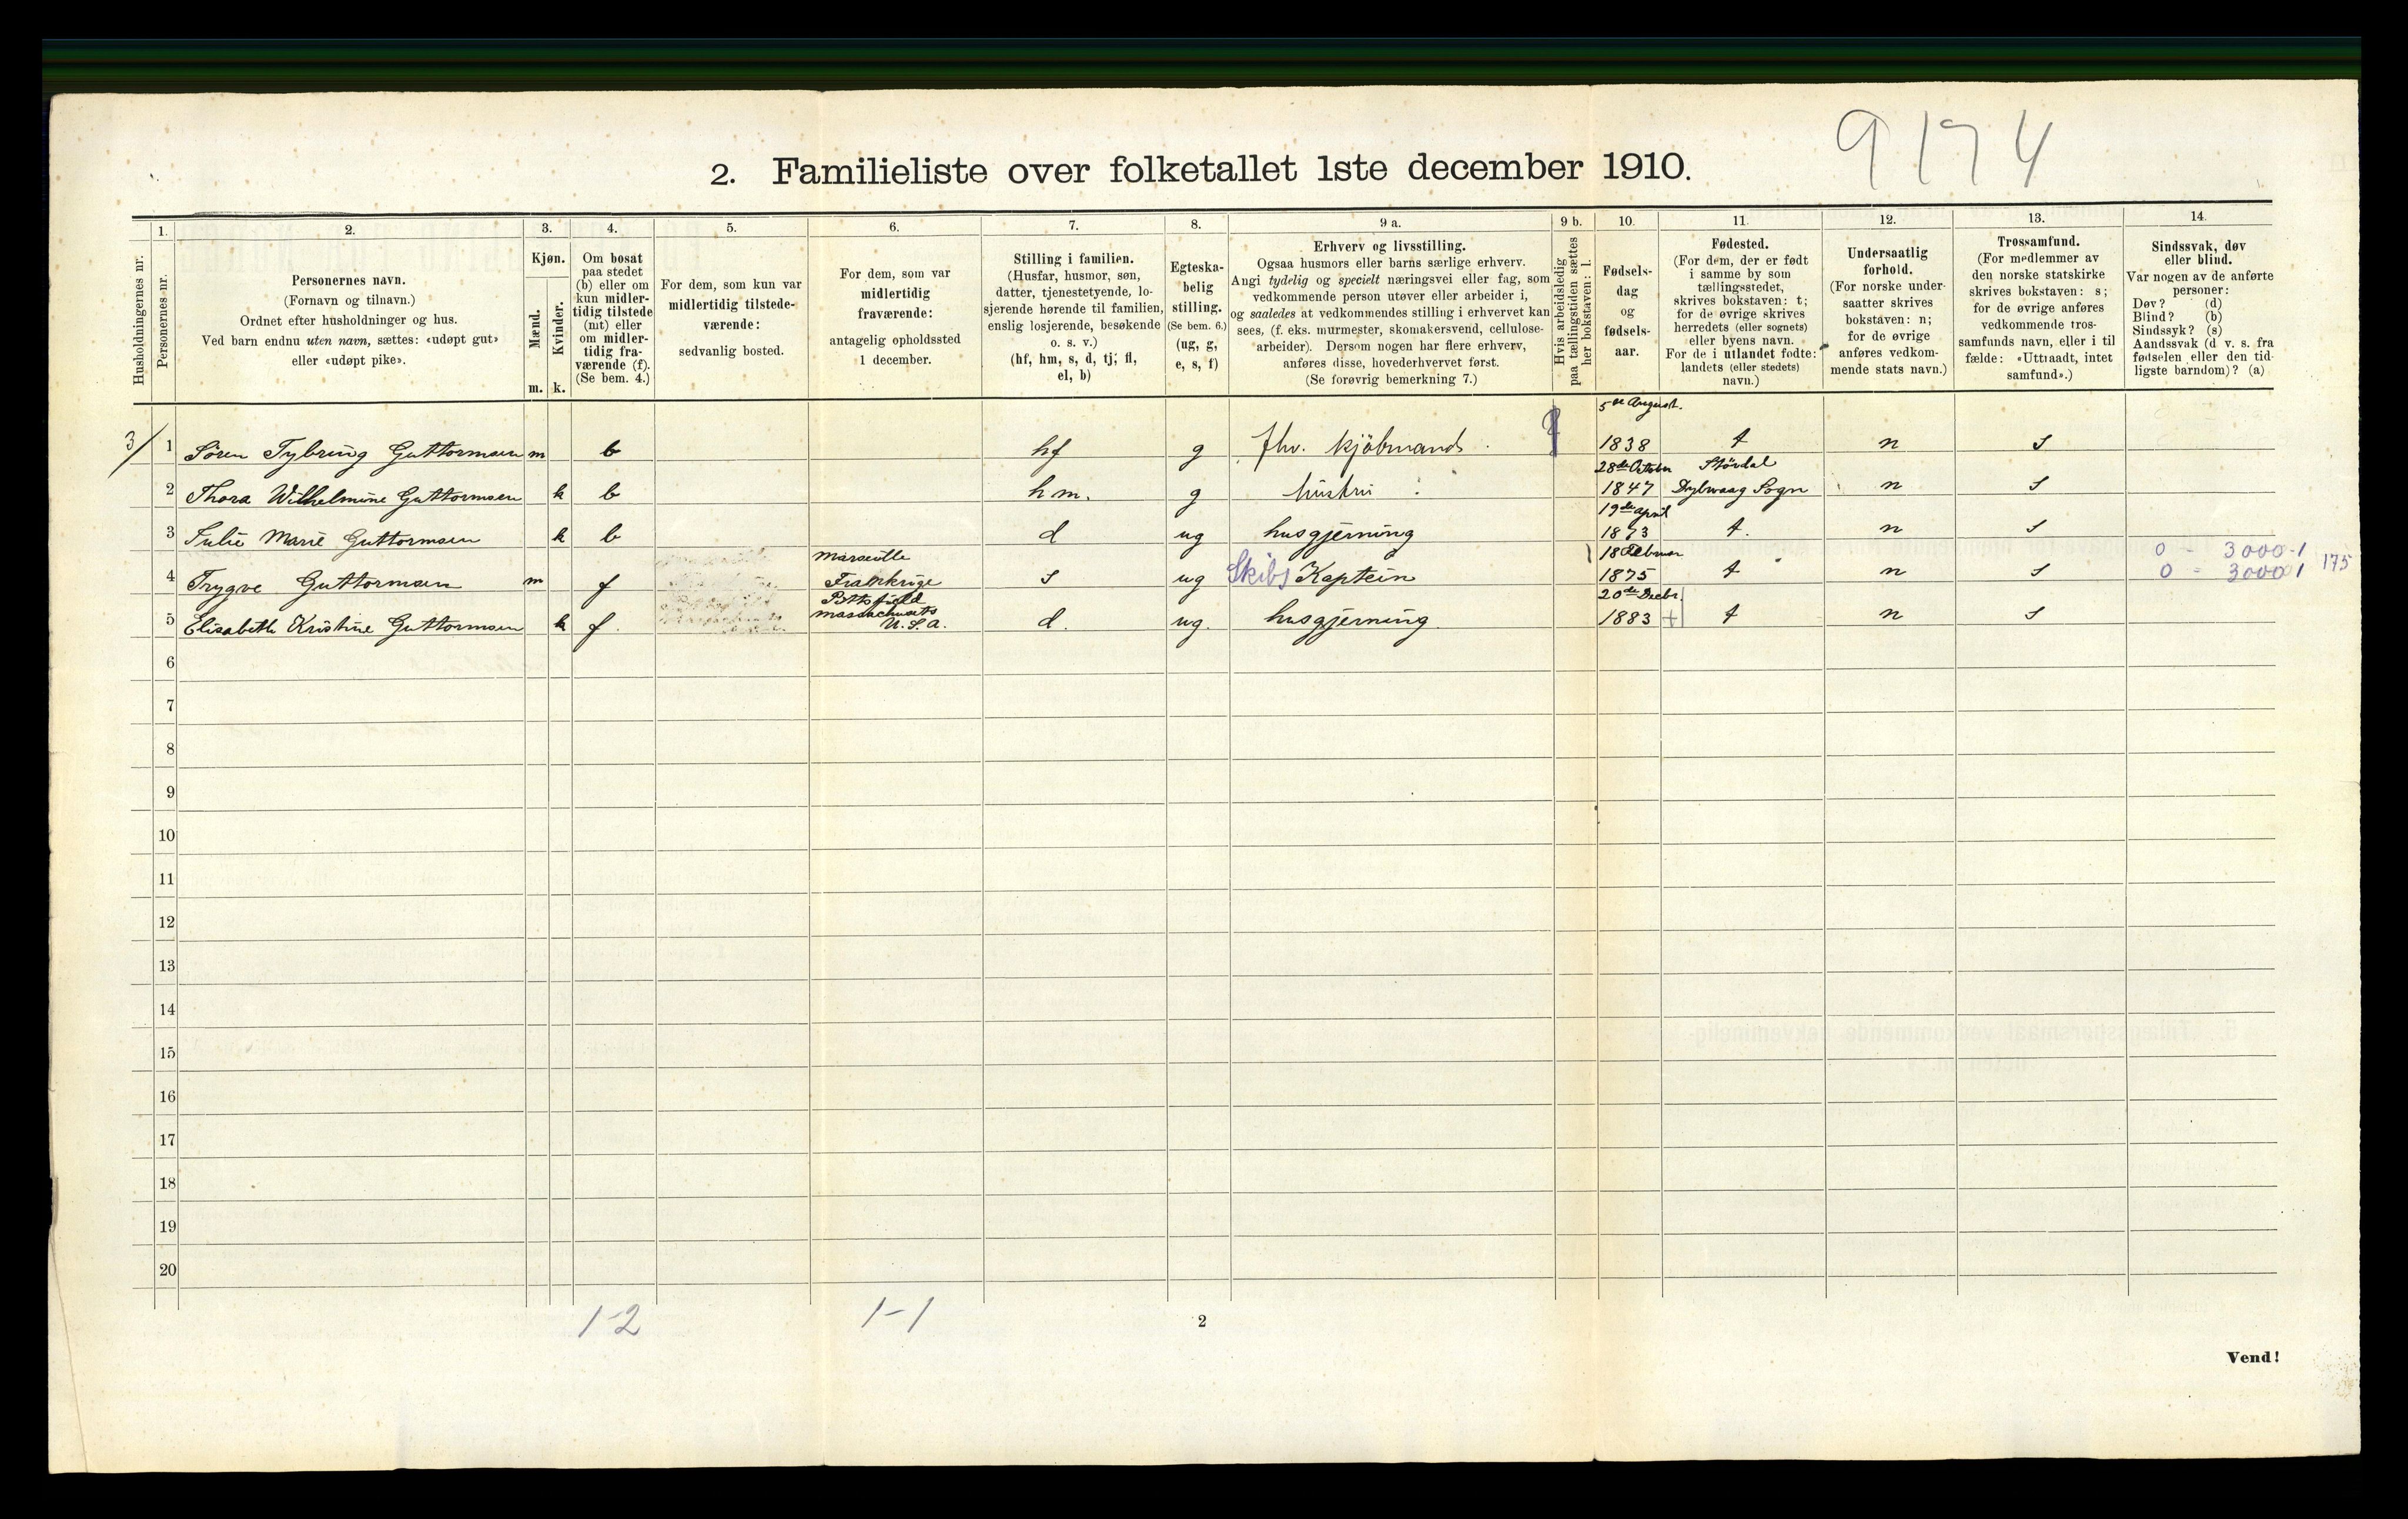 9174
2. Familieliste over folketallet 1ste december 1910.
Husholdningernes nr.
1.
Personernes nr.
2.
Personernes navn.
(Fornavn og tilnavn.)
Ordnet efter husholdninger og hus.
Ved barn endnu uten navn, sættes: «udøpt gut»
eller «udøpt pike».
3.
Kjøn.
Mænd.
Kvinder.
m. k.
4.
Om bosat
paa stedet
(b) eller om
kun midler-
tidig tilstede
(mt) eller
om midler-
tidig fra-
værende (f).
(Se bem. 4.)
5.
For dem, som kun var
midlertidig tilstede-
værende:
sedvanlig bosted.
6.
For dem, som var
midlertidig
fraværende:
antagelig opholdssted
1 december.
7.
Stilling i familien.
(Husfar, husmor, søn,
datter, tjenestetyende, lo-
sjerende hørende til familien,
enslig losjerende, besøkende
o. s. v.)
(hf, hm, s, d, tj, fl,
el, b)
8.
Egteska-
belig
stilling.
(Se bem. 6.)
(ug, g,
e, s, f)
9 a.
Erhverv og livsstilling.
Ogsaa husmors eller barns særlige erhverv.
Angi tydelig og specielt næringsvei eller fag, som
vedkommende person utøver eller arbeider i,
og saaledes at vedkommendes stilling i erhvervet kan
sees, (f. eks. murmester, skomakersvend, cellulose-
arbeider). Dersom nogen har flere erhverv,
anføres disse, hovederhvervet først.
(Se forøvrig bemerkning 7.)
9 b.
Hvis arbeidsledig
paa tællingstiden sættes
her bokstaven: l.
10.
Fødsels-
dag
og
fødsels-
aar.
11.
Fødested.
(For dem, der er født
i samme by som
tællingsstedet,
skrives bokstaven: t;
for de øvrige skrives
herredets (eller sognets)
eller byens navn.
For de i utlandet fødte:
landets (eller stedets)
navn.)
12.
Undersaatlig
forhold.
(For norske under-
saatter skrives
bokstaven: n;
for de øvrige
anføres vedkom-
mende stats navn.)
13.
Trossamfund.
(For medlemmer av
den norske statskirke
skrives bokstaven: s;
for de øvrige anføres
vedkommende tros-
samfunds navn, eller i til
fælde: «Uttraadt, intet
samfund».)
14.
Sindssvak, døv
eller blind.
Var nogen av de anførte
personer:
Døv? (d)
Blind? (b)
Sindssyk? (s)
Aandssvak (d. v. s. fra
fødselen eller den tid-
ligste barndom)? (a)
5de August.
3/ 1 Sören Tybring Guttormsen m b hf g fhv. kjöbmand. 1838 t n s
28de October Stördal
2 Thora Wilhelmine Guttormsen k b hm. g hustru 1847 Dybvaag Sogn n s
19de april
3 Julie Marie Guttormsen k b d ug husgjerning 1873 t. n s
Marseille 18 Februar 0 - 3000-1
4 Trygve Guttormsen m f Frankrige s ug Skibs Kaptein 1875 t n s 0 - 3000 1 175
Pittsfield 20de Decbr.
massachusets
5 Elisabeth Kristine Guttormsen k f. U.S.A. d. ug. husgjerning 1883 + t n s
6
7
8
9
10
11
12
13
14
15
16
17
18
19
20
1-2 1-1
2
Vend!